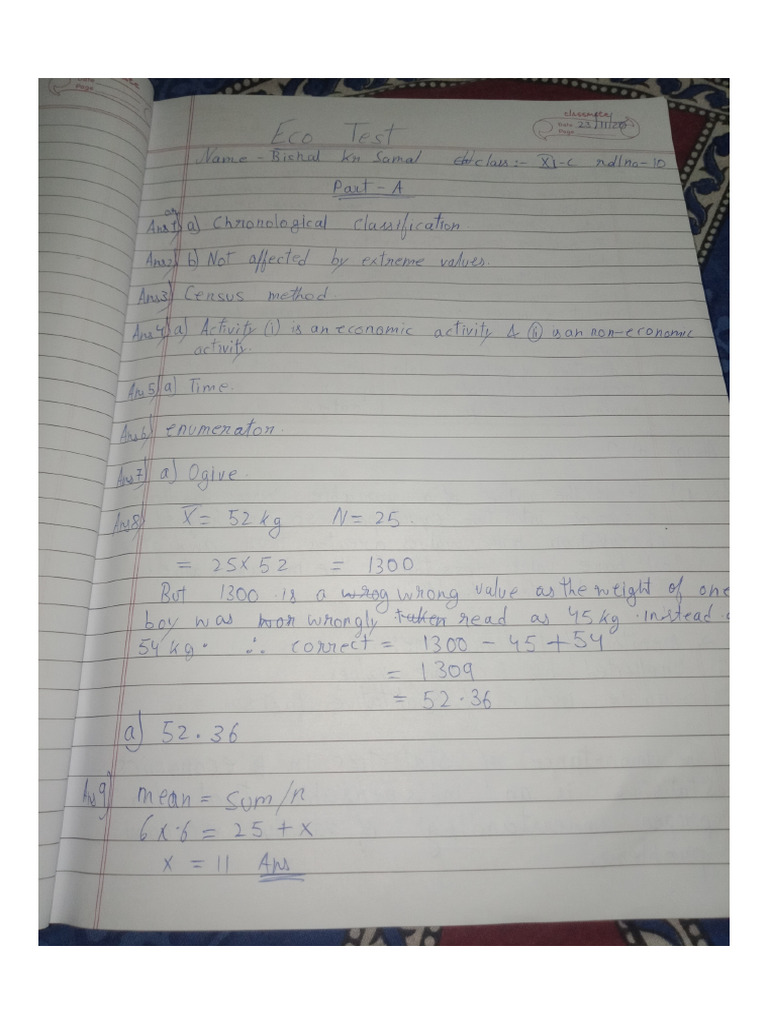 classmate
Date 23/11/20
Page
Page
Eco Test
Name - Bishal Kr Samal class:- XI-C rollno-10
Part - A
Ans1) a) Chronological classification.
Ans2) b) Not affected by extreme values.
Ans3) Census method
Ans4) a) Activity (i) is an economic activity & (ii) is an non-economic
activity.
Ans5) a) Time.
Ans6) enumeraton.
Ans7) a) Ogive.
Ans8) X̄ = 52 kg N = 25.
= 25 × 52 = 1300
But 1300 is a wrog wrong value as the weight of one
boy was wron wrongly taken read as 45 kg instead
54 kg. ∴ correct = 1300 - 45 + 54
= 1309
= 52.36
a) 52.36
Ans9) mean = Sum/n
6×6 = 25 + x
x = 11 Ans